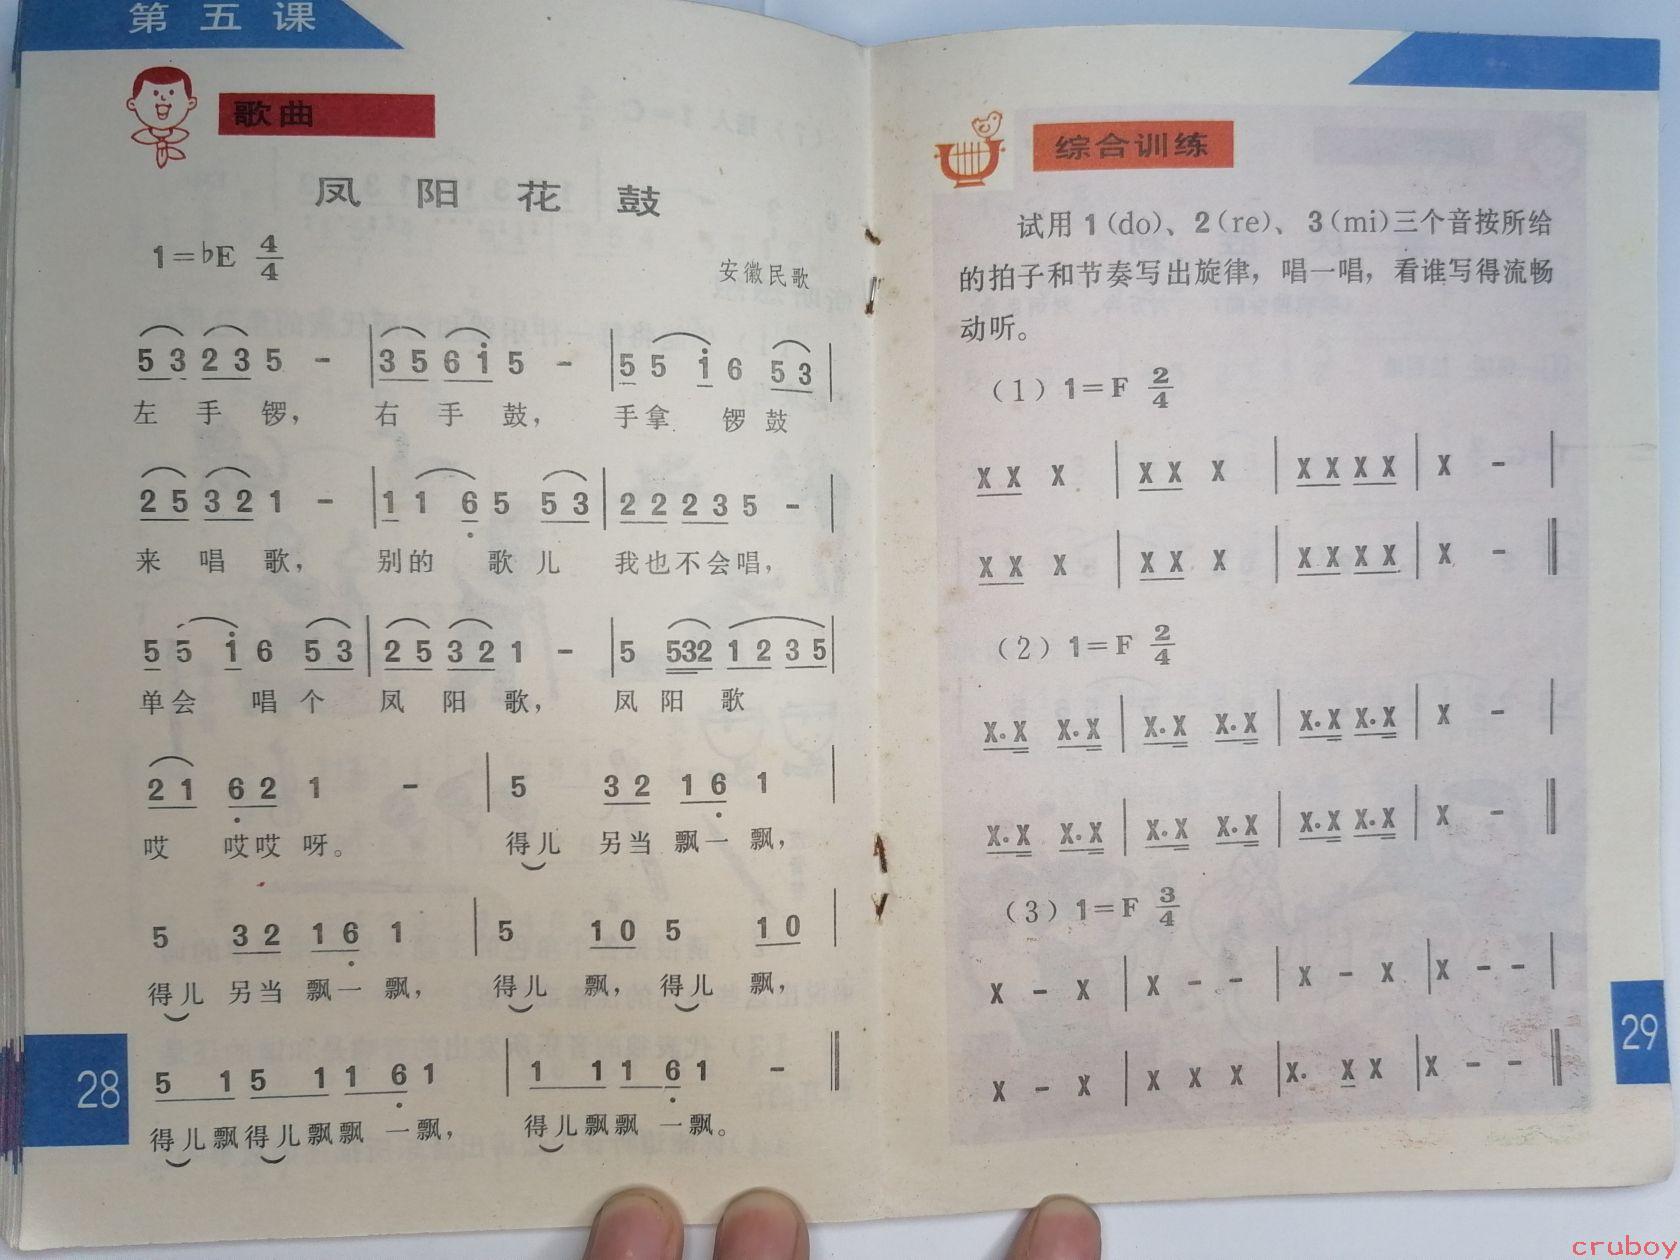 第五课
歌曲
凤阳花鼓
1=♭E 4/4
安徽民歌
5 3 2 3 5 - | 3 5 6 i 5 - | 5 5 i 6 5 3 |
左 手 锣， 右 手 鼓， 手拿 锣鼓
2 5 3 2 1 - | 1 1 6 5 5 3 | 2 2 2 3 5 - |
来 唱 歌， 别的 歌儿 我也不会唱，
5 5 i 6 5 3 | 2 5 3 2 1 - | 5 532 1 2 3 5 |
单会 唱个 凤 阳 歌， 凤 阳 歌
2 1 6 2 1 - | 5 3 2 1 6 1 |
哎 哎哎 呀。 得儿 另当 飘一 飘，
5 3 2 1 6 1 | 5 1 0 5 1 0 |
得儿 另当 飘一 飘， 得儿 飘， 得儿 飘，
5 1 5 1 1 6 1 | 1 1 1 6 1 - ‖
得儿飘得儿飘飘 一飘， 得儿飘飘 一飘。
28
综合训练
试用1(do)、2(re)、3(mi)三个音按所给
的拍子和节奏写出旋律，唱一唱，看谁写得流畅
动听。
(1) 1=F 2/4
X X X | X X X | X X X X | X - |
X X X | X X X | X X X X | X - ‖
(2) 1=F 2/4
X. X X. X | X. X X. X | X. X X. X | X - |
X. X X. X | X. X X. X | X. X X. X | X - ‖
(3) 1=F 3/4
X - X | X - - | X - X | X - - |
X - X | X X X | X. X X | X - - ‖
29
cruboy